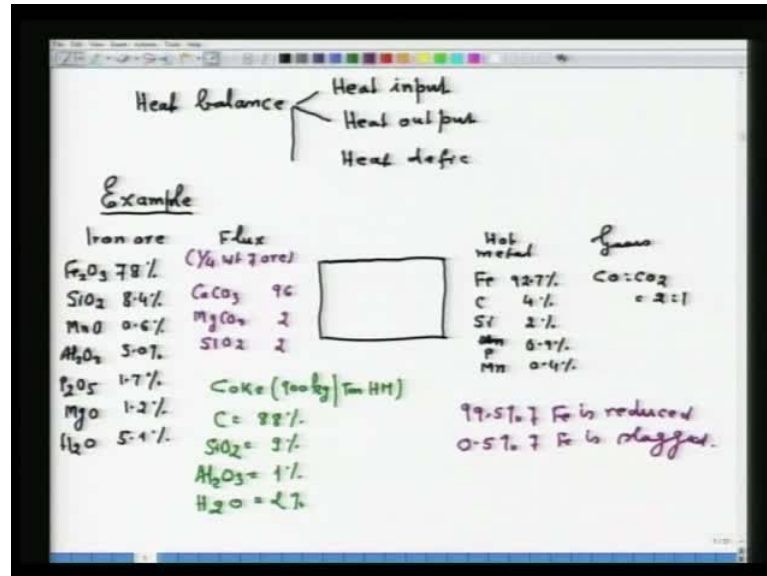 Heat balance
Heat input
Heat output
Heat defic
Example
Iron ore
Fe2O3 78%
SiO2 8.4%
MnO 0.6%
Al2O3 5.0%
P2O5 1.7%
MgO 1.2%
H2O 5.1%
Flux
(1/4 wt 7 ore)
CaCO3 96
MgCO3 2
SiO2 2
Coke (900kg/Ton HM)
C = 88%
SiO2 = 9%
Al2O3 = 1%
H2O = 2%
Hot
metal
Fe 92.7%
C 4%
Si 2%
P 0.9%
Mn 0.4%
Gases
CO:CO2
= 2:1
99.5% 7 Fe is reduced
0.5% 7 Fe is slagged.